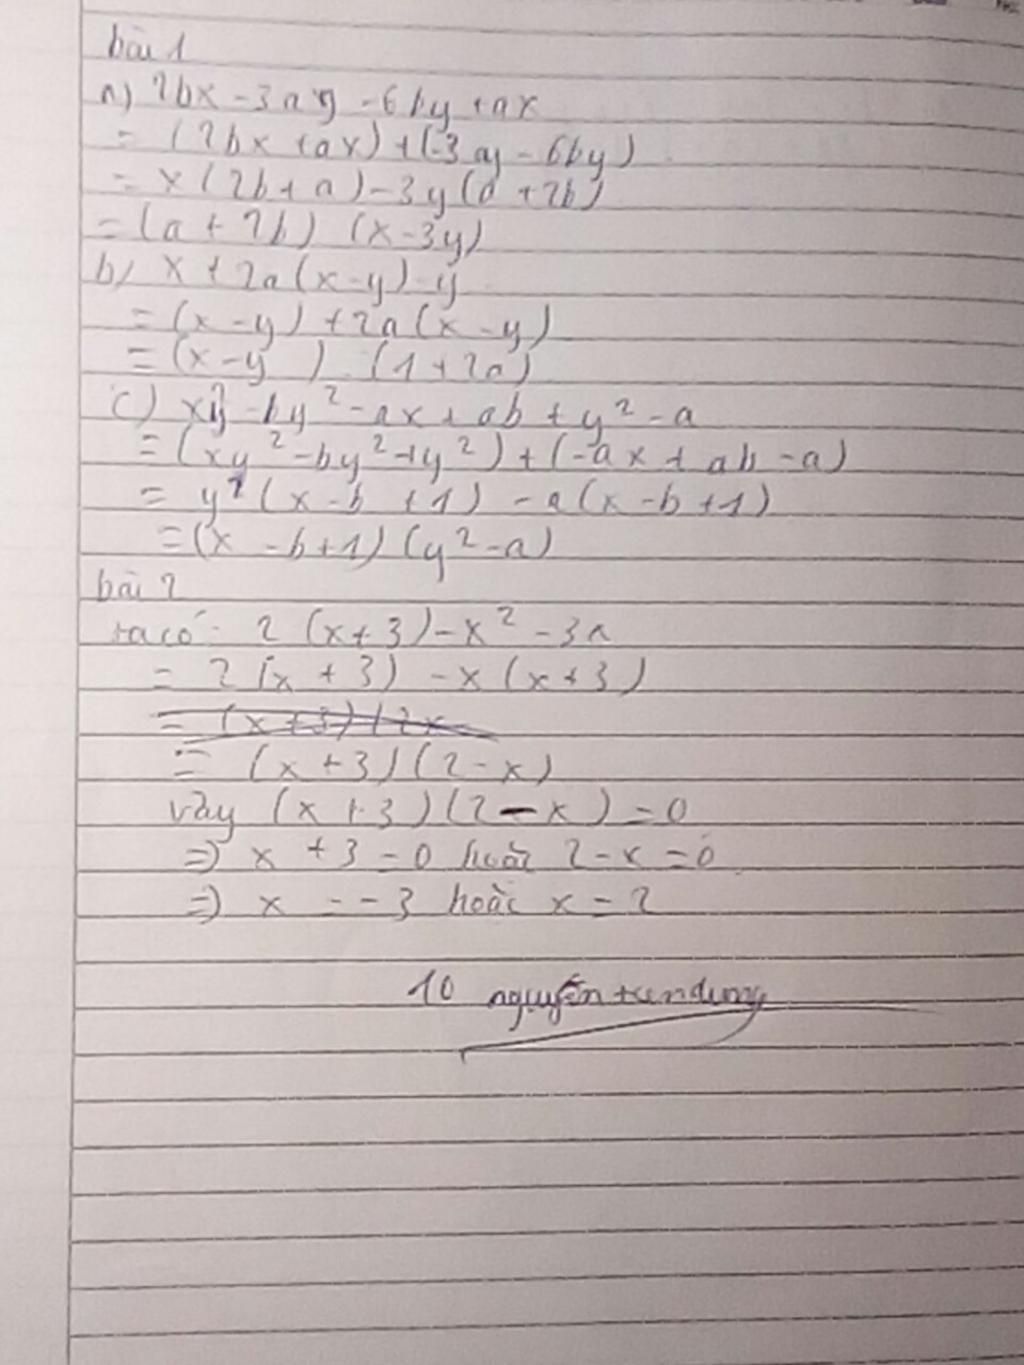 bài 1
a) 2bx - 3ay - 6by + ax
= (2bx + ax) + (-3ay - 6by)
= x(2b + a) - 3y(a + 2b)
= (a + 2b) (x - 3y)
b) x + 2a(x - y) - y
= (x - y) + 2a(x - y)
= (x - y) . (1 + 2a)
c) xy² - by² - ax + ab + y² - a
= (xy² - by² + y²) + (-ax + ab - a)
= y²(x - b + 1) - a(x - b + 1)
= (x - b + 1) (y² - a)
bài 2
ta có 2 (x + 3) - x² - 3x
= 2(x + 3) - x(x + 3)
= (x + 3)(2x
= (x + 3)(2 - x)
vậy (x + 3)(2 - x) = 0
=> x + 3 = 0 hoặc 2 - x = 0
=> x = -3 hoặc x = 2
10 nguyễn